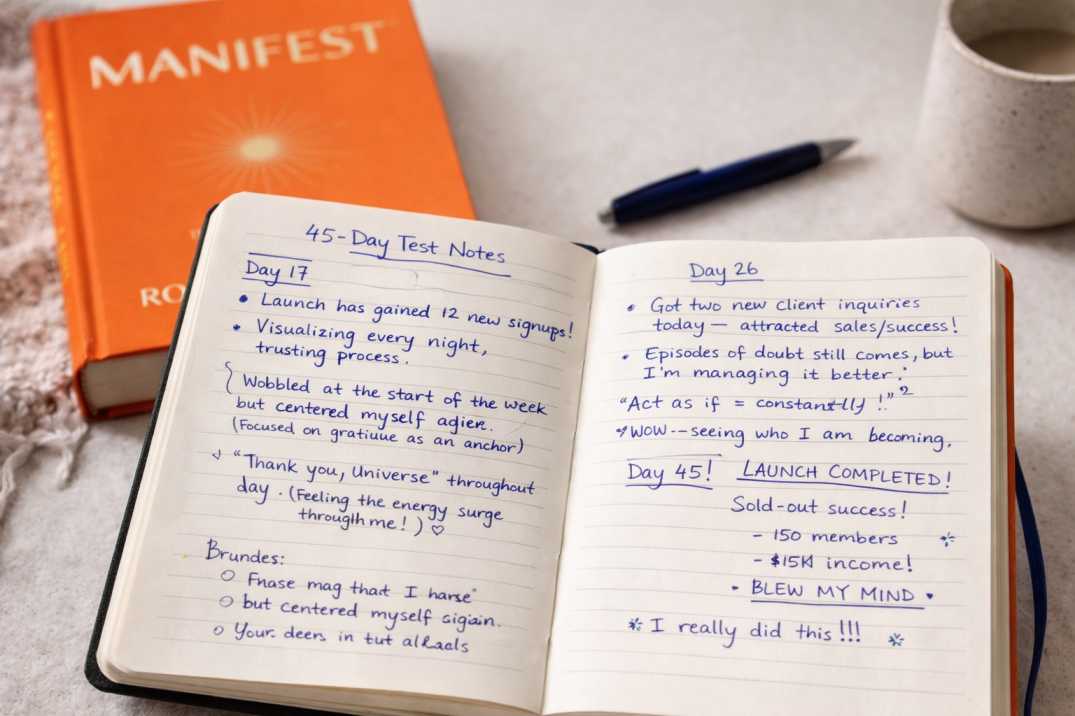 MANIFEST
RO
45-Day Test Notes
Day 17
• Launch has gained 12 new signups!
• Visualizing every night,
trusting process.
Wobbled at the start of the week
but centered myself
(Focused on as an anchor)
"Thank you, Universe" throughout
day. (Feeling the energy surge
through me!) ♡
Brundes:
mag that I
but centered myself
Your deers in tut
Day 26
• Got two new client inquiries
today — attracted sales/success!
• Episodes of doubt still comes, but
I'm managing it better.
"Act as if = !" 2
WOW -- seeing who I am becoming.
Day 45! LAUNCH COMPLETED!
Sold-out success!
- 150 members
- income!
• BLEW MY MIND •
* I really did this!!! *